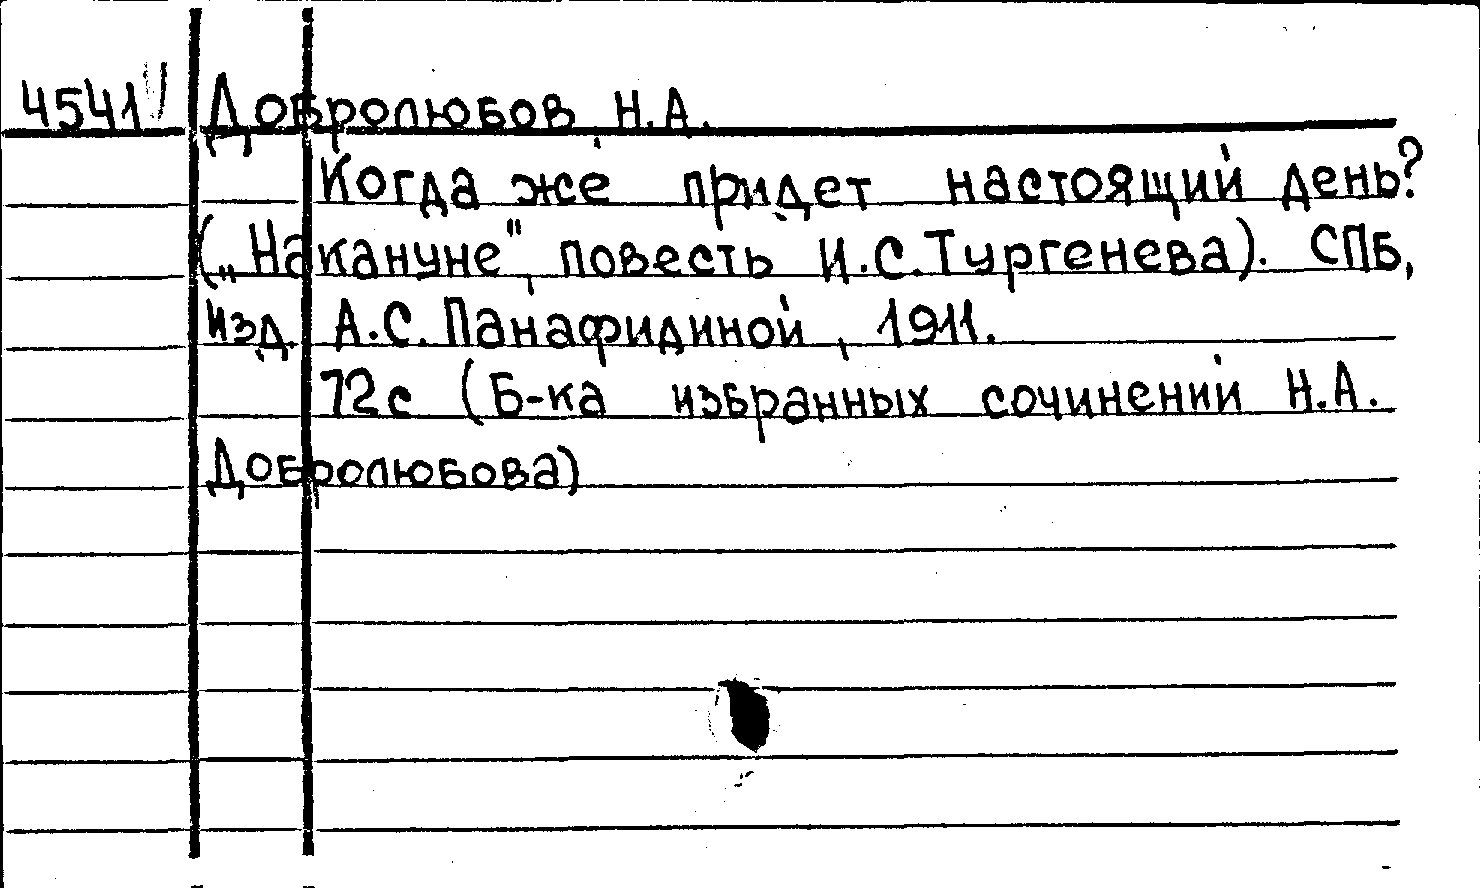 4541 Добролюбов Н.А.
Когда же придет настоящий день?
(„Накануне", повесть И.С.Тургенева). СПБ,
изд. А.С.Панафидиной, 1911.
72с (Б-ка избранных сочинений Н.А.
Добролюбова)